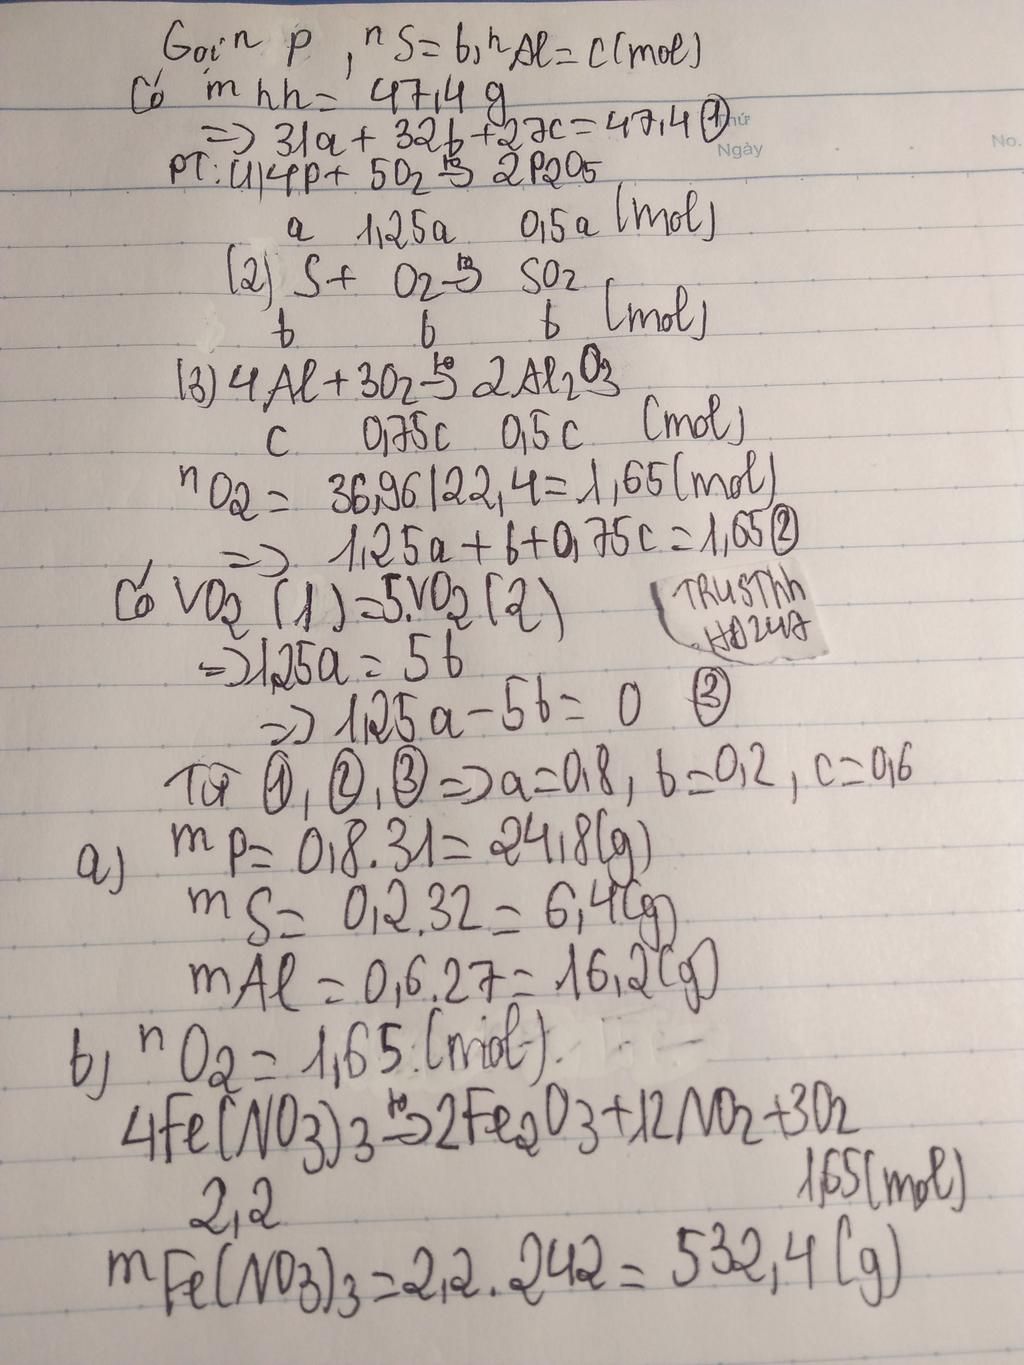 Gọi n P , n S = b, n Al = c (mol)
Có m hh = 47,4 g
=> 31a + 32b + 27c = 47,4 ①
Thứ
Ngày
No.
PT: (1) 4P + 5O2 -to-> 2P2O5
a 1,25a 0,5a (mol)
(2) S + O2 -to-> SO2
b b b (mol)
(3) 4Al + 3O2 -to-> 2Al2O3
c 0,75c 0,5c (mol)
nO2 = 36,96/22,4 = 1,65 (mol)
=> 1,25a + b + 0,75c = 1,65 ②
Có VO2 (1) = 5.VO2 (2)
TRUSThh
HD247
=> 1,25a = 5b
=> 1,25a - 5b = 0 ③
Từ ①, ②, ③ => a = 0,8, b = 0,2, c = 0,6
a) mP = 0,8.31 = 24,8 (g)
mS = 0,2.32 = 6,4 (g)
mAl = 0,6.27 = 16,2 (g)
b) nO2 = 1,65 (mol).
4Fe(NO3)3 -to-> 2Fe2O3 + 12NO2 + 3O2
2,2 1,65 (mol)
mFe(NO3)3 = 2,2.242 = 532,4 (g)